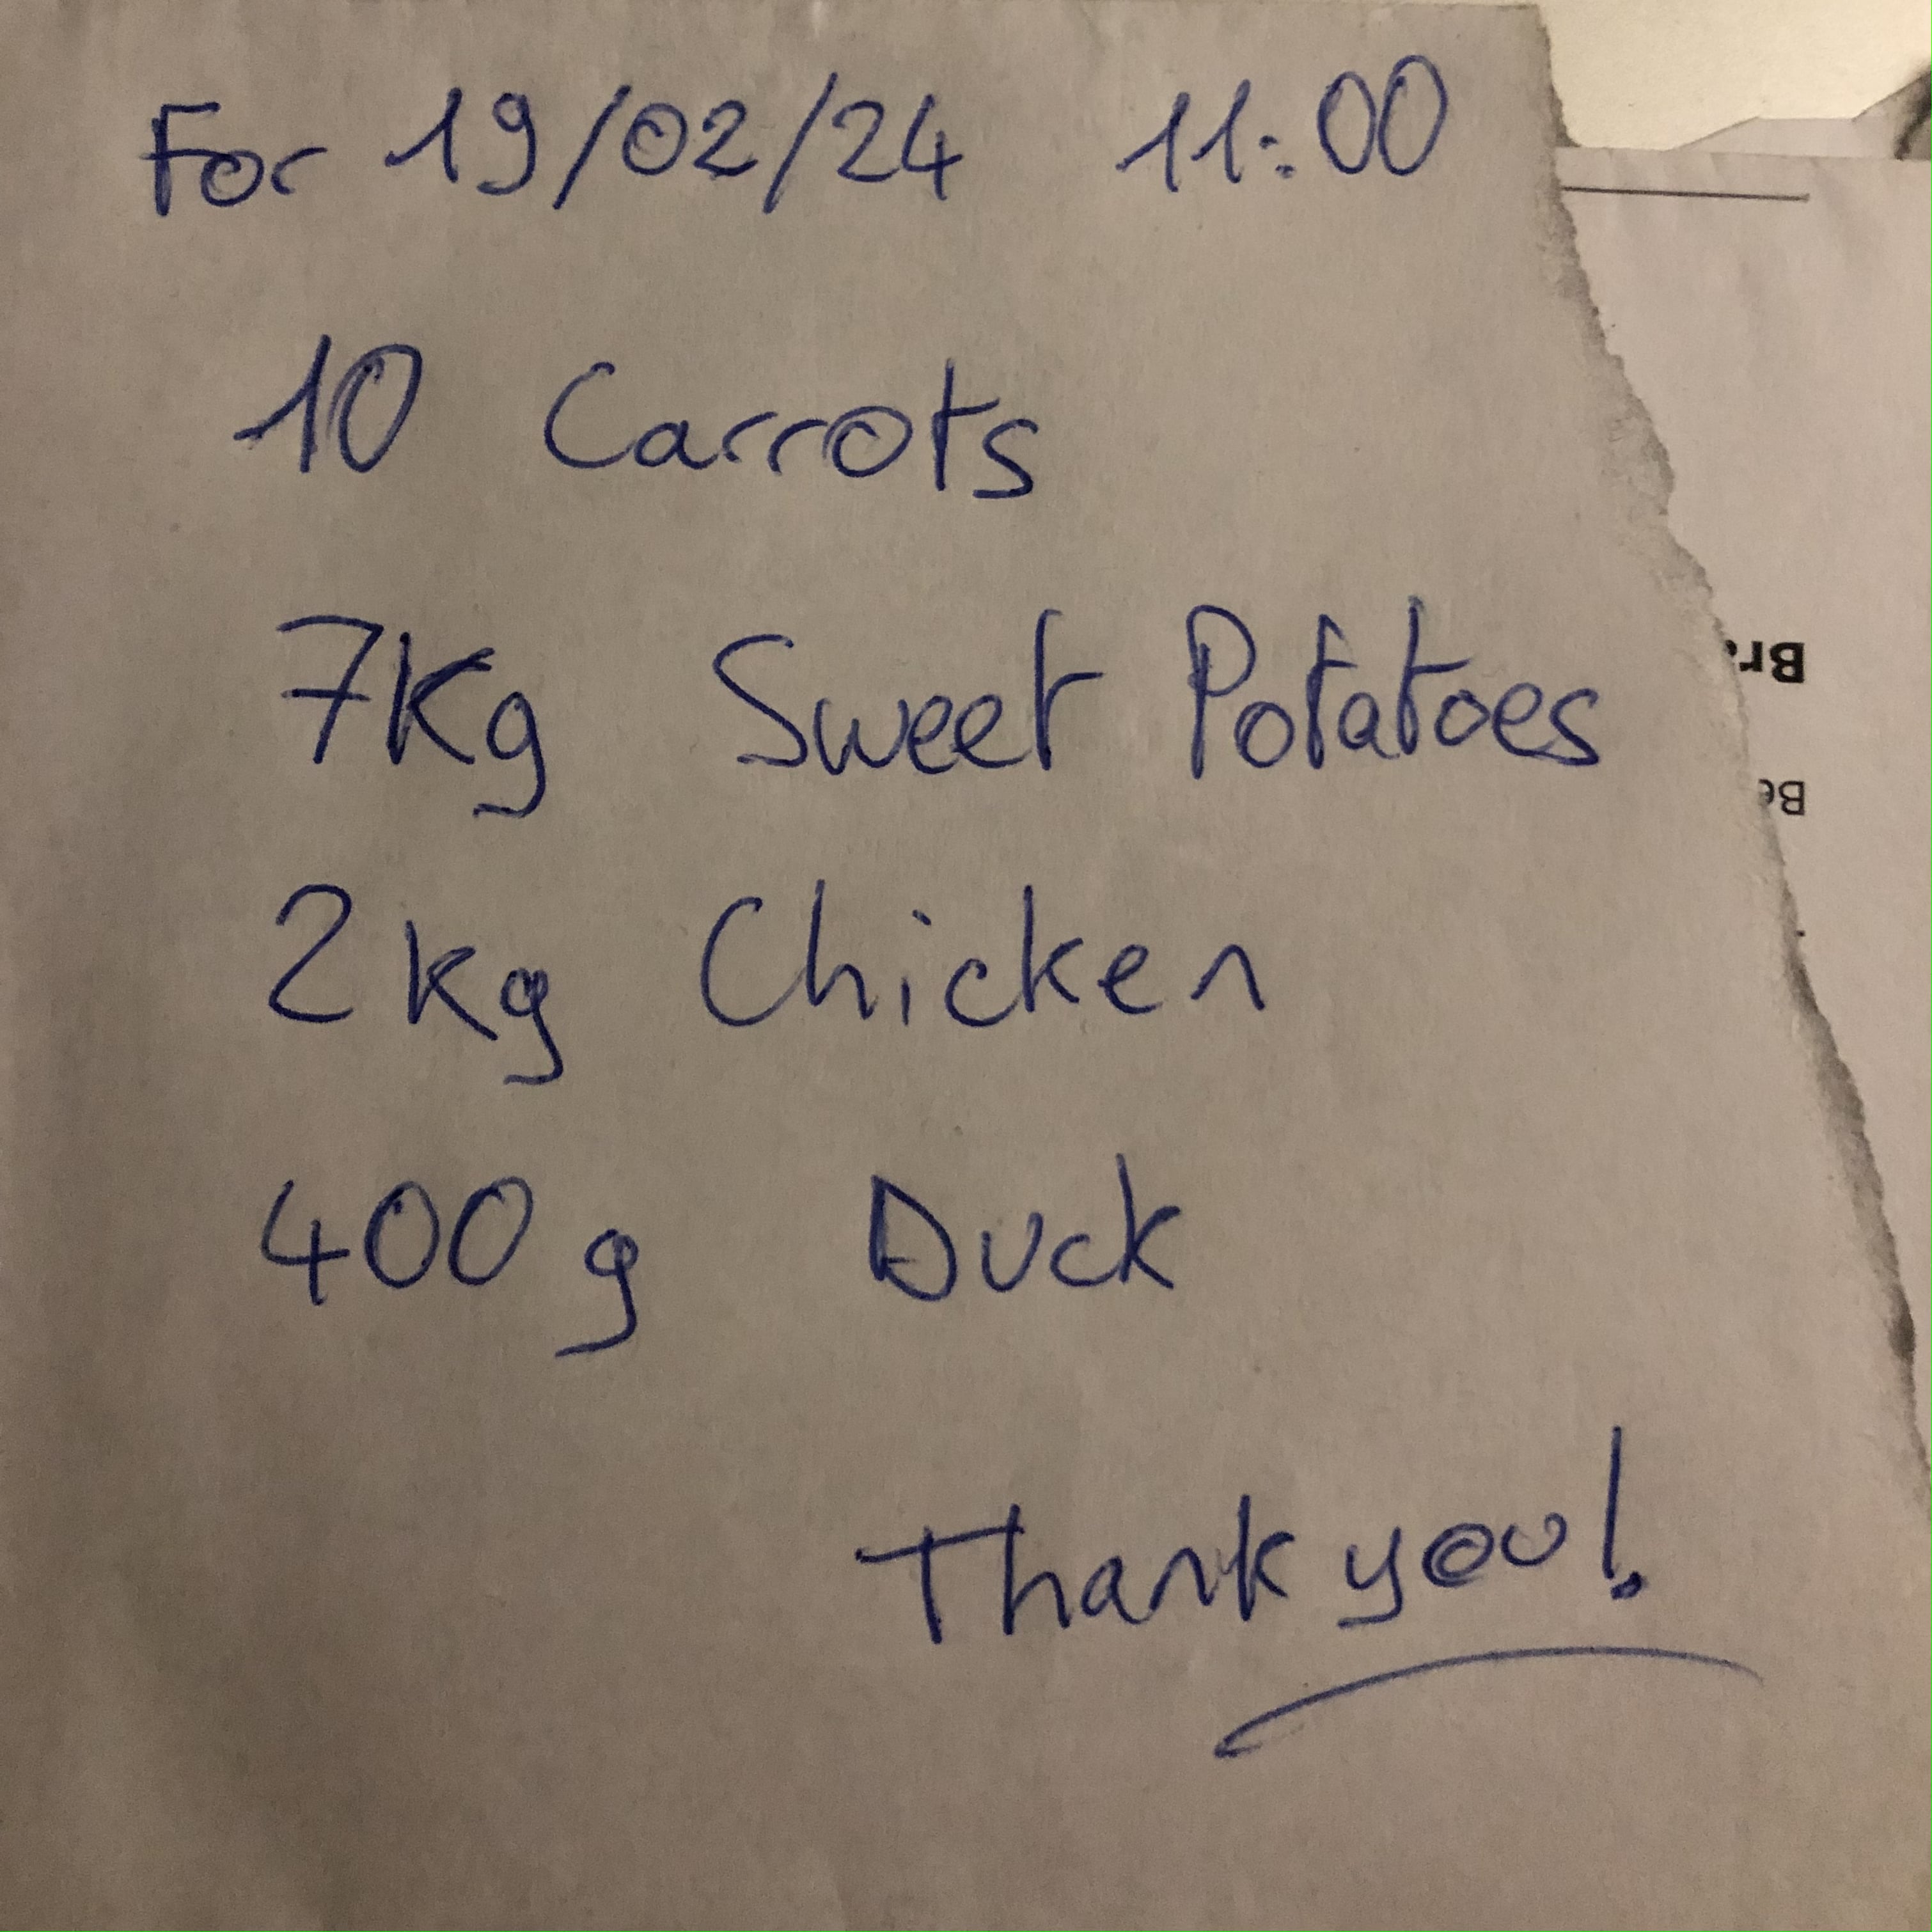 For 19/02/24 11:00
10 Carrots
7Kg Sweet Potatoes
2kg Chicken
400g Duck
Thank you!